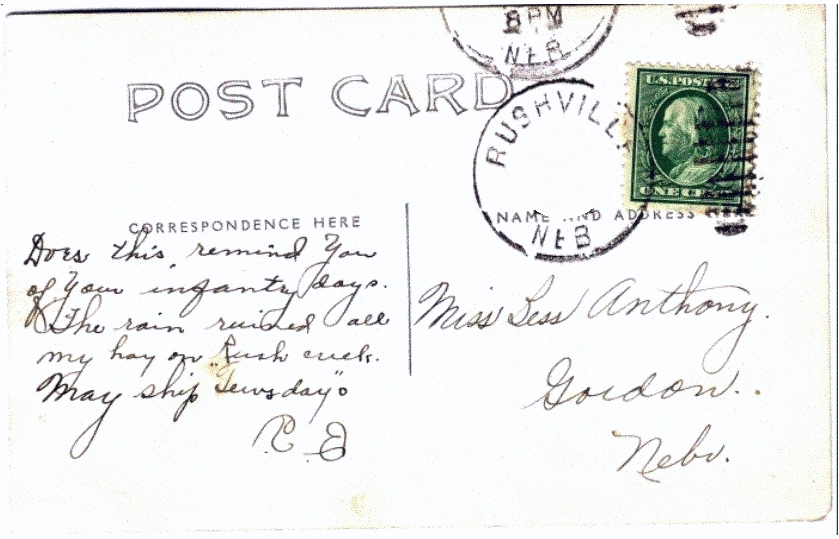 8 PM
NEB
POST CARD
RUSHVILL
NEB
U.S. POST
ONE CE
CORRESPONDENCE HERE
NAME AND ADDRESS HERE
Does this remind you
of your infantry days.
The rain ruined all
my hay on Rush creek.
May ship "Tewsday".
Miss Bess Anthony.
Gordon.
Nebr.